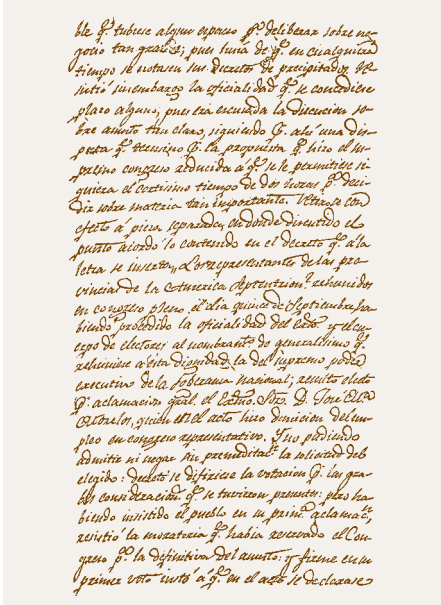 ble q.e tubiese algun espacio p.a deliberar sobre ne-
gocio tan grabe; pues temia de q.e en cualquiera
tiempo se notasen sus decretos de precipitados. Re-
sistió sin embargo la oficialidad q.e se concediese
plazo alguno, pues era escusada la discucion so-
bre asunto tan claro, siguiendo á ahi una dis-
puta q.e terminó p.r la propuesta q.e hizo el su-
premo congreso reducida á q.e se le permitiese si-
quiera el cortisimo tiempo de dos horas p.a deci-
dir sobre materia tan importante. Retirose con
efecto á pieza separada, en donde discutido el
punto acordó lo contenido en el decreto q.e á la
letra se inserta. Los representantes de las pro-
vincias de la America Septentrion.l rehunidos
en congreso pleno el dia quince de Septiembre, ha-
biendo procedido la oficialidad del Exto. y el cu-
erpo de electores al nombram.to de generalisimo q.e
rehuniese á ésta dignidad la del supremo poder
executivo de la soberania nacional; resultó electo
p.r aclamacion gral. el Exmo. Sor. D. José M.a
Morelos, quien en el acto hizo dimicion del em-
pleo en congreso representativo. Y no pudiendo
admitir ni negar sin premeditac.n la solicitud del
elegido: decretó se difiriese la votacion p.r las gra-
bes consideracion.s q.e se tuvieron presentes: pero ha-
biendo insistido el pueblo en su prim.a aclamac.n,
resistió la moratoria q.e habia reservado el Con-
greso p.a la difinitiva del asunto: y firme en su
primer voto instó á q.e en el acto se declarase